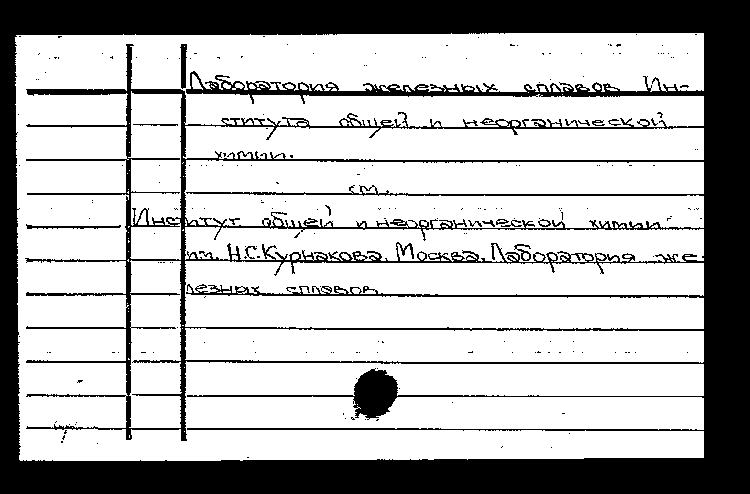 Лаборатория железных сплавов Ин-
ститута общей и неорганической
химии.
см.
Институт общей и неорганической химии
им. Н.С.Курнакова. Москва. Лаборатория же-
лезных сплавов.